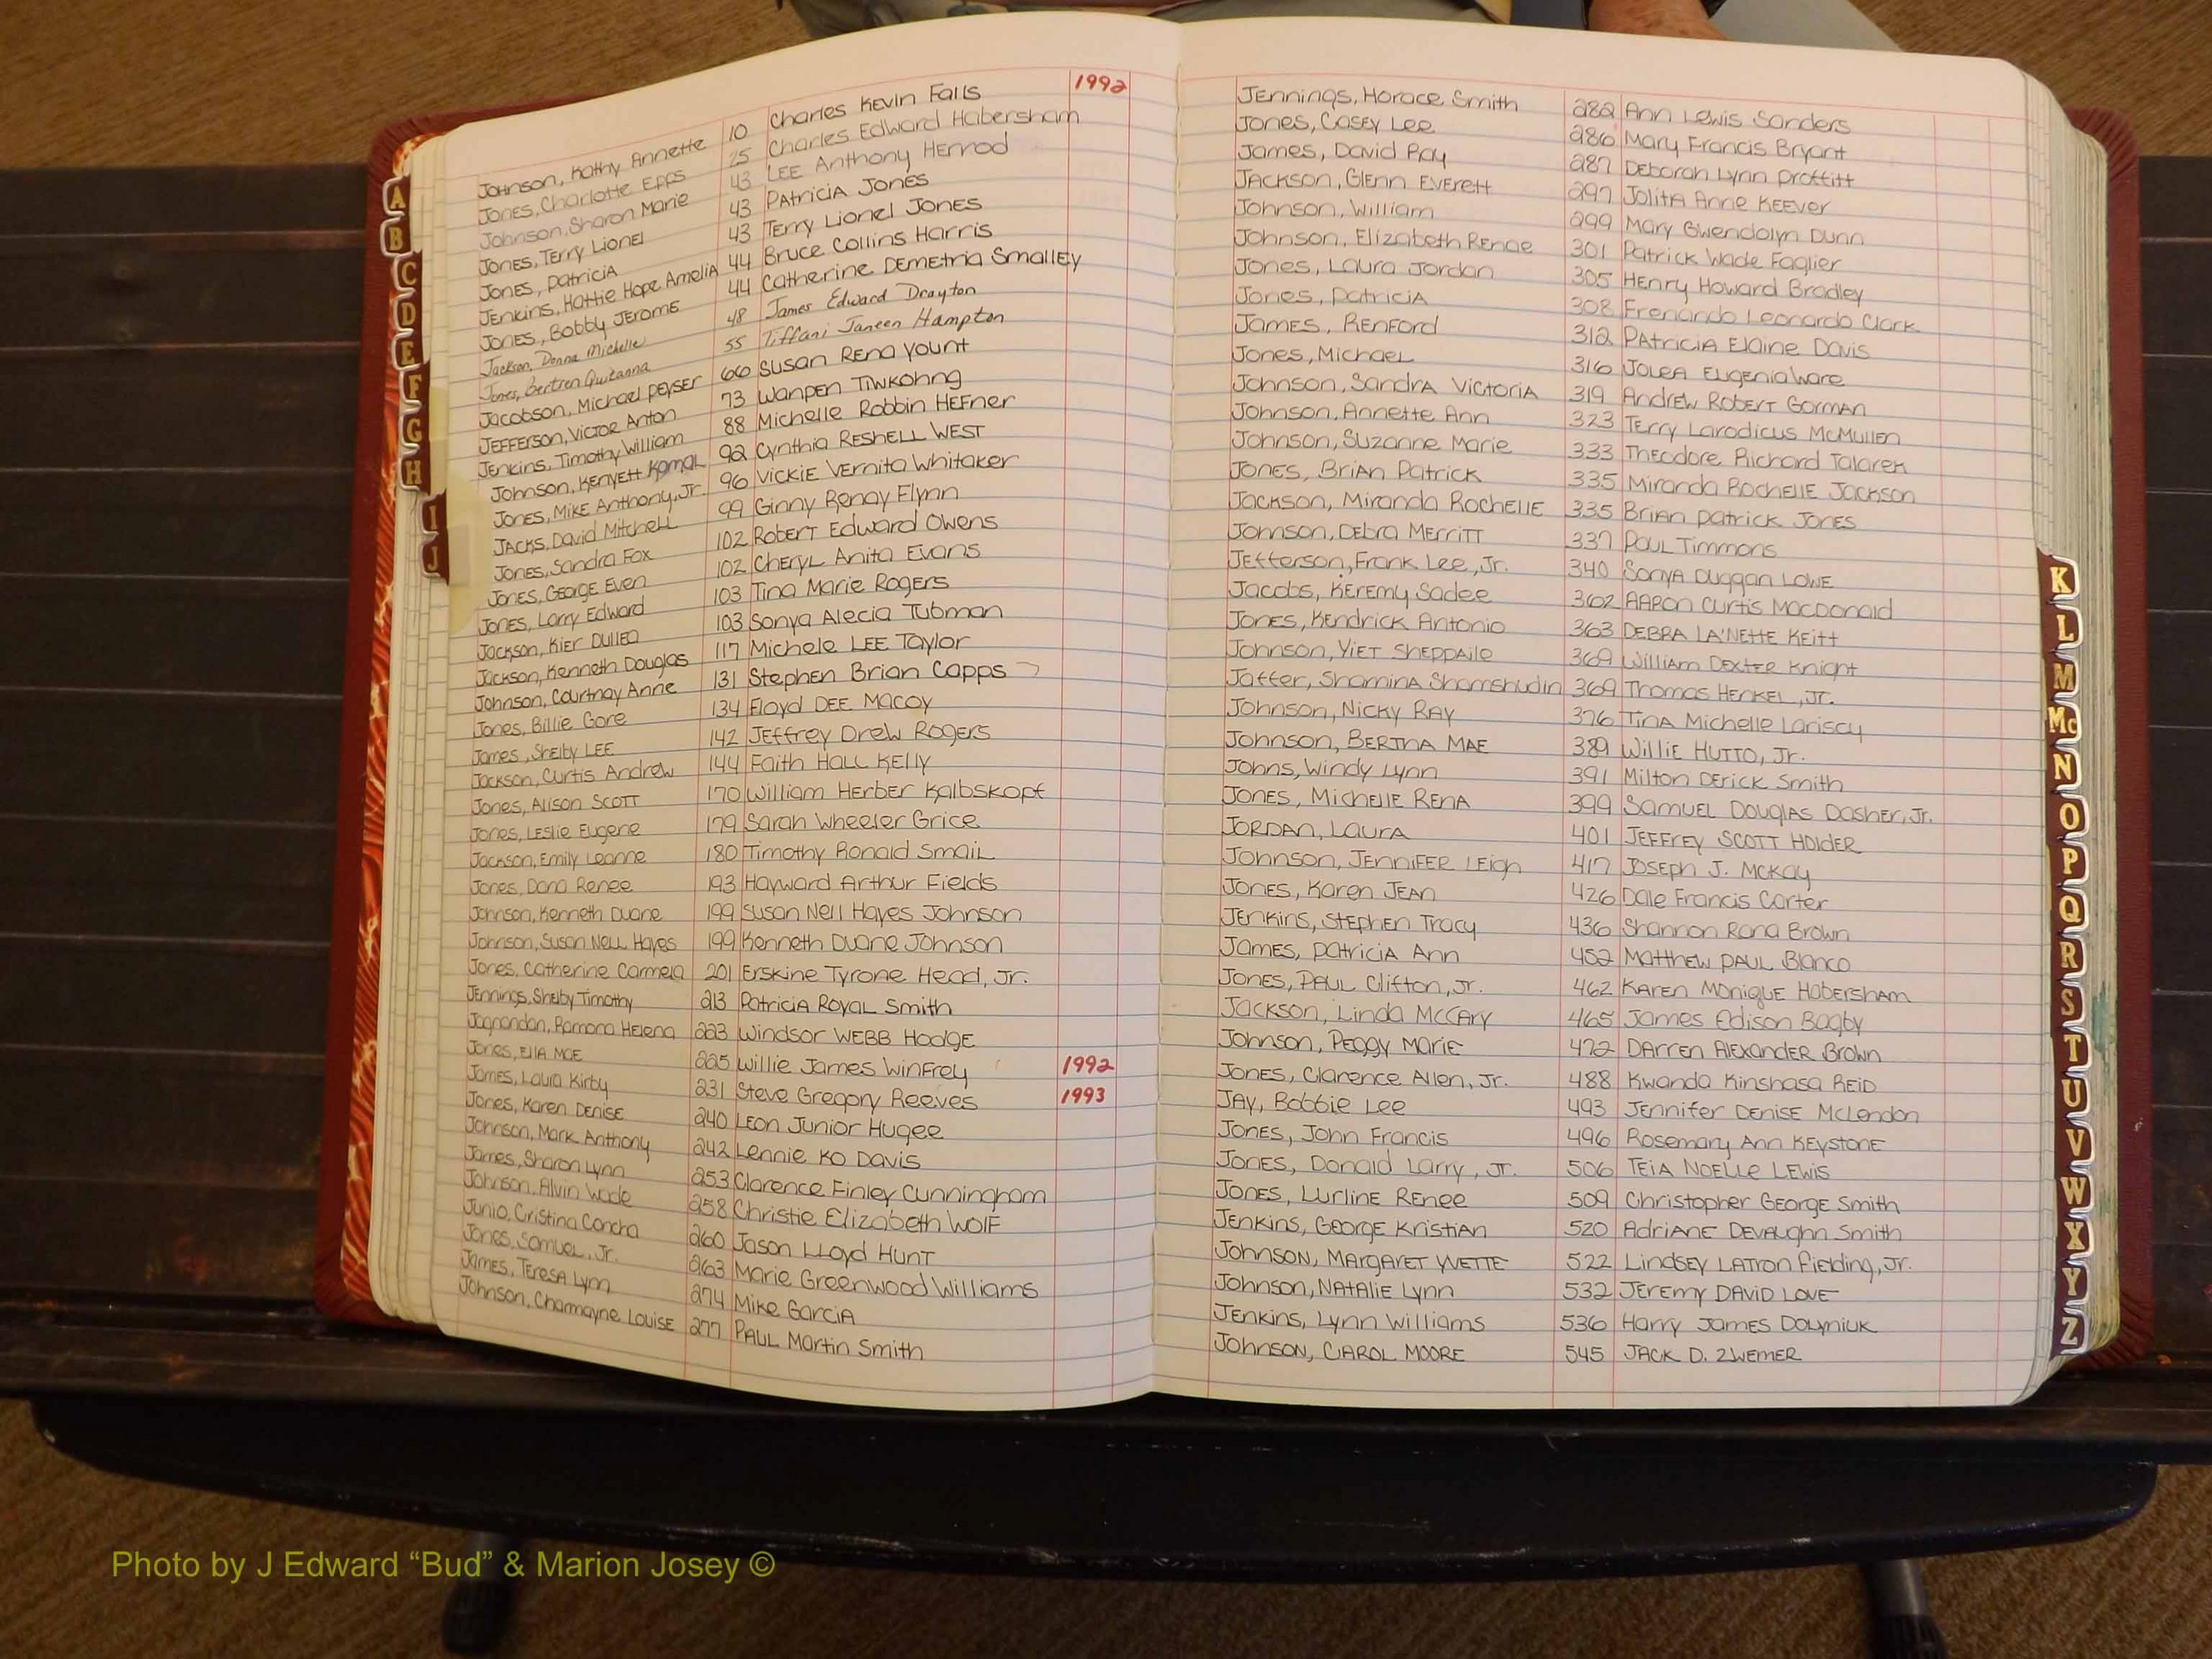 Johnson, Kathy Annette 10 Charles Kevin Falls 1992
Jones, Charlotte Epps 25 Charles Edward Habersham
Johnson, Sharon Marie 43 Lee Anthony Herrod
Jones, Terry Lionel 43 Patricia Jones
Jones, Patricia 43 Terry Lionel Jones
Jenkins, Hattie Hope Amelia 44 Bruce Collins Harris
Jones, Bobby Jerome 44 Catherine Demetria Smalley
Jackson, Donna Michelle 48 James Edward Drayton
Jones, Bertren Quitanna 55 Tiffani Janeen Hampton
Jacobson, Michael Peyser 66 Susan Rena Yount
Jefferson, Victor Anton 73 Wanpen Tiwkohng
Jenkins, Timothy William 88 Michelle Robbin Hefner
Johnson, Kenyett Komal 92 Cynthia Reshell West
Jones, Mike Anthony, Jr. 96 Vickie Vernita Whitaker
Jacks, David Mitchell 99 Ginny Renay Flynn
Jones, Sandra Fox 102 Robert Edward Owens
Jones, George Even 102 Cheryl Anita Evans
Jones, Larry Edward 103 Tina Marie Rogers
Jackson, Kier Dulleo 103 Sonya Alecia Tubman
Jackson, Kenneth Douglas 117 Michele Lee Taylor
Johnson, Courtnay Anne 131 Stephen Brian Capps
Jones, Billie Gore 134 Floyd Dee Macoy
James, Shelby Lee 142 Jeffrey Drew Rogers
Jackson, Curtis Andrew 144 Faith Hall Kelly
Jones, Alison Scott 170 William Herber Kalbskopf
Jones, Leslie Eugene 179 Sarah Wheeler Grice
Jackson, Emily Leanne 180 Timothy Ronald Smail
Jones, Dana Renee 193 Hayward Arthur Fields
Johnson, Kenneth Duane 199 Susan Nell Hayes Johnson
Johnson, Susan Nell Hayes 199 Kenneth Duane Johnson
Jones, Catherine Carmela 201 Erskine Tyrone Head, Jr.
Jennings, Shelby Timothy 213 Patricia Royal Smith
Jagnandan, Ramona Helena 223 Windsor Webb Hodge
Jones, Ella Mae 225 Willie James Winfrey 1992
James, Laura Kirby 231 Steve Gregory Reeves 1993
Jones, Karen Denise 240 Leon Junior Hugee
Johnson, Mark Anthony 242 Lennie Ko Davis
James, Sharon Lynn 253 Clarence Finley Cunningham
Johnson, Alvin Wade 258 Christie Elizabeth Wolf
Junio, Cristina Concha 260 Jason Lloyd Hunt
Jones, Samuel, Jr. 263 Marie Greenwood Williams
James, Teresa Lynn 274 Mike Garcia
Johnson, Charmayne Louise 277 Paul Martin Smith
Jennings, Horace Smith 282 Ann Lewis Sanders
Jones, Casey Lee 286 Mary Francis Bryant
James, David Ray 287 Deborah Lynn Proffitt
Jackson, Glenn Everett 297 Jolita Anne Keever
Johnson, William 299 Mary Gwendolyn Dunn
Johnson, Elizabeth Renae 301 Patrick Wade Faglier
Jones, Laura Jordan 305 Henry Howard Bradley
Jones, Patricia 308 Frenando Leonardo Clark
James, Renford 312 Patricia Elaine Davis
Jones, Michael 316 Jolea Eugenia Ware
Johnson, Sandra Victoria 319 Andrew Robert Gorman
Johnson, Annette Ann 323 Terry Larodicus McMullen
Johnson, Suzanne Marie 333 Theodore Richard Talarek
Jones, Brian Patrick 335 Miranda Rochelle Jackson
Jackson, Miranda Rochelle 335 Brian Patrick Jones
Johnson, Debra Merritt 337 Paul Timmons
Jefferson, Frank Lee, Jr. 340 Sonya Duggan Lowe
Jacobs, Keremy Sadee 362 Aaron Curtis MacDonald
Jones, Kendrick Antonio 363 Debra La'Nette Keitt
Johnson, Yiet Sheppaile 369 William Dexter Knight
Jaffer, Shamina Shamshudin 369 Thomas Henkel, Jr.
Johnson, Nicky Ray 376 Tina Michelle Lariscy
Johnson, Bertha Mae 389 Willie Hutto, Jr.
Johns, Windy Lynn 391 Milton Derick Smith
Jones, Michelle Rena 399 Samuel Douglas Dasher, Jr.
Jordan, Laura 401 Jeffrey Scott Holder
Johnson, Jennifer Leigh 417 Joseph J. McKay
Jones, Karen Jean 426 Dale Francis Carter
Jenkins, Stephen Tracy 436 Shannon Rana Brown
James, Patricia Ann 452 Matthew Paul Blanco
Jones, Paul Clifton, Jr. 462 Karen Monique Habersham
Jackson, Linda McCary 465 James Edison Bagby
Johnson, Peggy Marie 472 Darren Alexander Brown
Jones, Clarence Allen, Jr. 488 Kwanda Kinshasa Reid
Jay, Bobbie Lee 493 Jennifer Denise McLendon
Jones, John Francis 496 Rosemary Ann Keystone
Jones, Donald Larry, Jr. 506 Teia Noelle Lewis
Jones, Lurline Renee 509 Christopher George Smith
Jenkins, George Kristian 520 Adriane Devaughn Smith
Johnson, Margaret Yvette 522 Lindsey Latron Fielding, Jr.
Johnson, Natalie Lynn 532 Jeremy David Love
Jenkins, Lynn Williams 536 Harry James Dolyniuk
Johnson, Carol Moore 545 Jack D. Zwemer
A
B
C
D
E
F
G
H
I
J
K
L
M
Mc
N
O
P
Q
R
S
T
U
V
W
X
Y
Z
Photo by J Edward “Bud” & Marion Josey ©